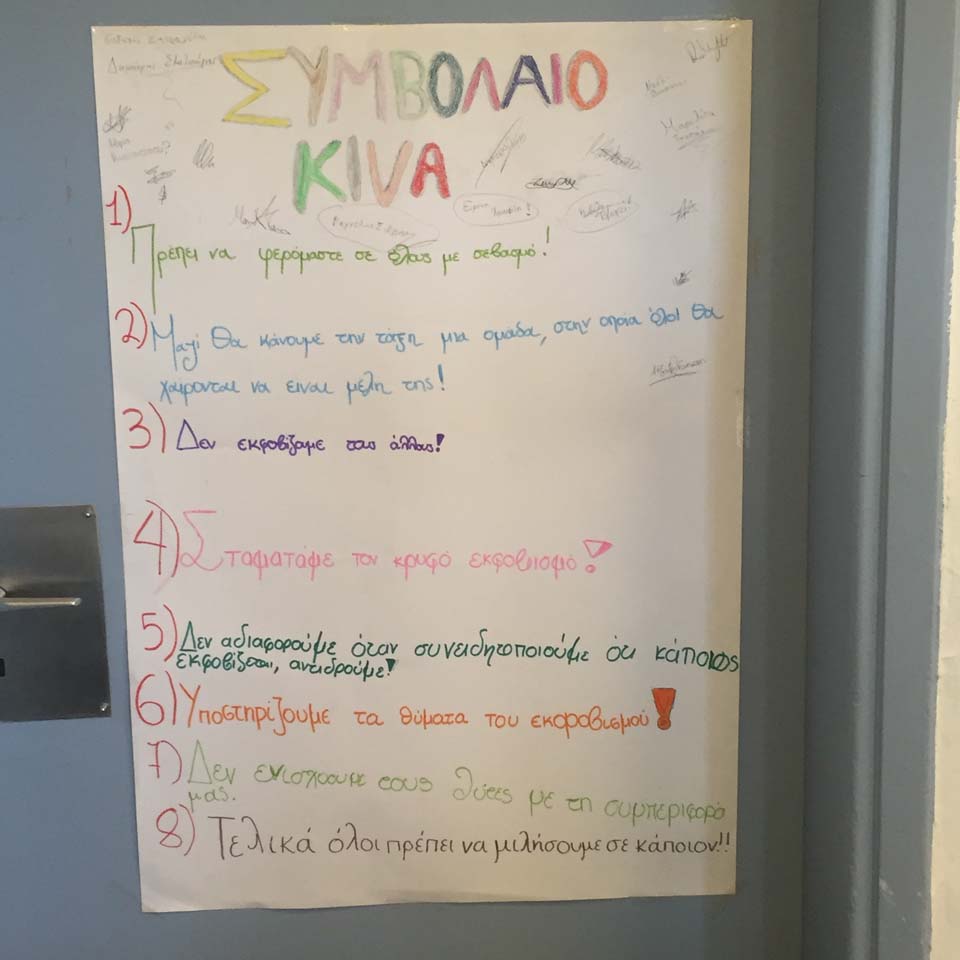 ΣΥΜΒΟΛΑΙΟ
KIVA
1) Πρέπει να φερόμαστε σε όλους με σεβασμό!
2) Μαζί θα κάνουμε την τάξη μια ομάδα, στην οποία όλοι θα
χαίρονται να ειναι μέλη της!
3) Δεν εκφοβίζουμε τους άλλους!
4) Σταματάμε τον κρυφό εκφοβισμό!
5) Δεν αδιαφορούμε όταν συνειδητοποιούμε ότι κάποιος
εκφοβίζεται, αντιδρούμε!
6) Υποστηρίζουμε τα θύματα του εκφοβισμού!
7) Δεν ενισχύουμε τους θύτες με τη συμπεριφορά
μας.
8) Τελικά όλοι πρέπει να μιλήσουμε σε κάποιον!!